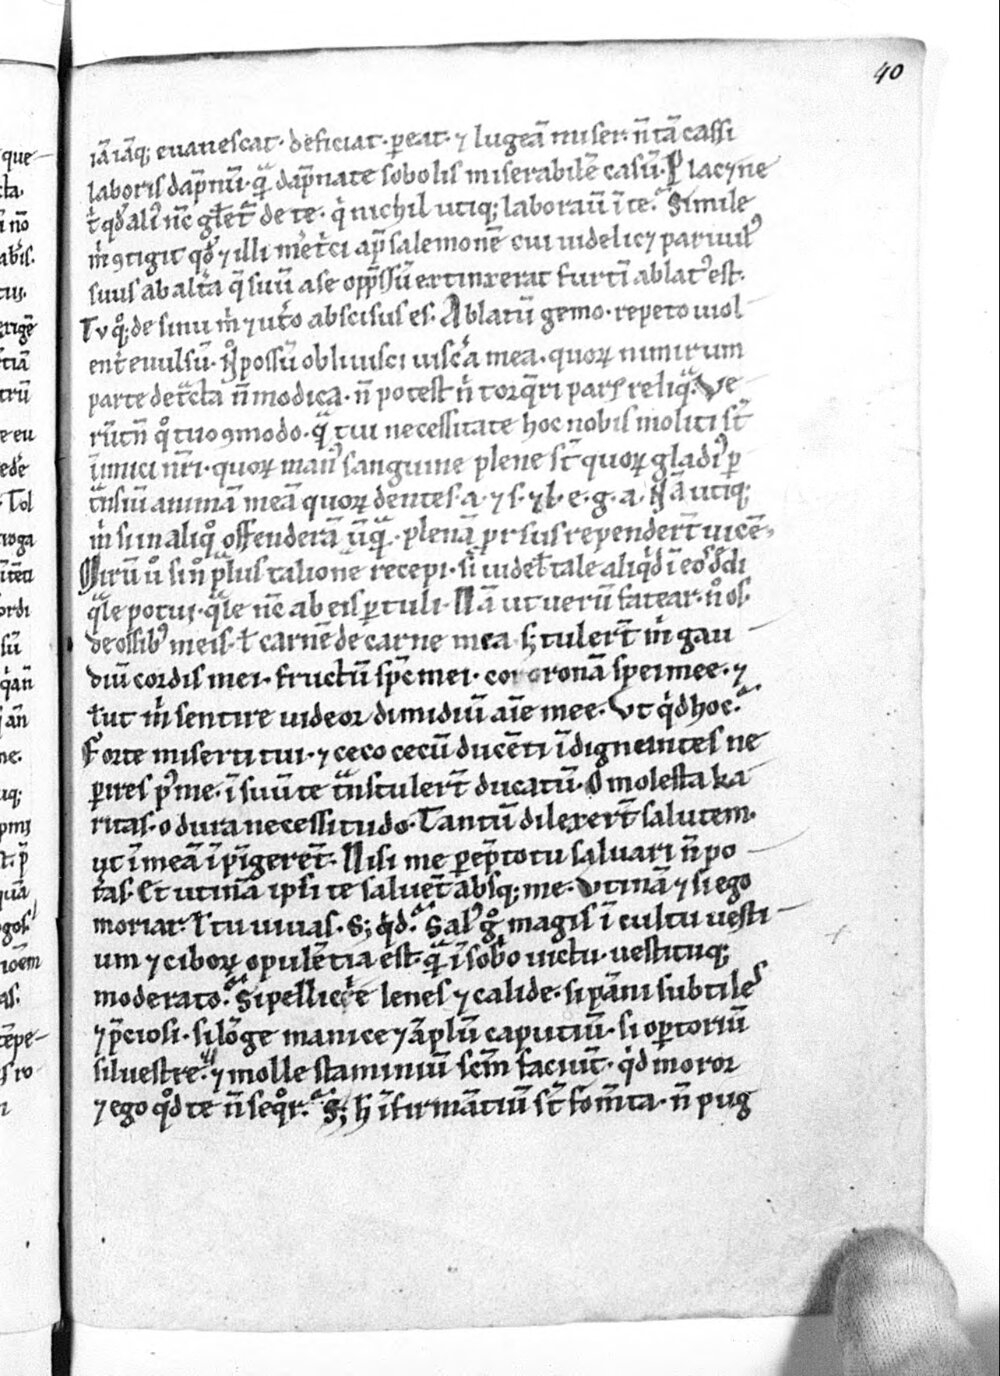 40
iā iāq; euanescat. deficiat. ꝑeat. ⁊ lugeā miser. n̄ tā cassi
laboris dāpnū. qᷓ dāpnate sobolis miserabilē casū. Placꝫne
t̄ qđ aliꝰ nc̄ gl̄et̄ de te. qͥ nichil utiq; laborauit̄ ī te. Simile
m̄ ꝯtigit qđ ⁊ illi met̄ci ap̄ salemonē cui uidelicꝫ paruulꝰ
suus ab alt̄a q̄ suū a se opp̄ssū extinxerat furtī ablatꝰ est.
Tu qͦꝫ de sinu m̄ ⁊ ut̄o abscisus es. Ablatū gemo. repeto uiol
ent̄ euulsū. Nō possū obliuisci uisc̄a mea. quoꝝ nimirum
parte det̄cta n̄ modica. n̄ potest n̄ torq̄ri pars reliqᷓ. Ve
rūtn̄ qͦ tuo ꝯmodo. qᷓ tui necessitate hoc nobis moliti st̄
inimici nr̄i. quoꝝ manꝰ sanguine plene st̄ quoꝝ gladiꝰ ꝑ
t̄nsiuit animā meā quoꝝ dentes. a. ⁊ s. ⁊ l. e. g. a. Nā utiq;
m̄ si in aliqͦ offenderā ūqᷓ. plenā prsus rependert̄ uicē.
Mirū ū si n̄ plus talione recepi. si uidel̄ tale aliqͥd ī eos ođdi
qᷓle potui. qᷓle nc̄ ab eis ꝑtuli. Nā ut uerū fatear. n̄ os
de ossibꝰ meis. t̄ carnē de carne mea. s; tulert̄ m̄ gau
diū cordis mei. fructū sp̄c mei. coronā spei mee. ⁊
t̄ ut m̄ sentire uideor dimidiū aīe mee. Vt qͥd hoc.
Forte miserti tui. ⁊ ceco cecū ducēti īdignantes ne
ꝑires pꝰ me. ī suū te t̄nstulert̄ ducatū. O molesta ka
ritas. o dura necessitudo. Tantū dilexert̄ salutem.
ut ī meā īpīgeret̄. Nisi me ꝑēpto tu saluari n̄ po
t̄as. Et utinā ipsi te saluet̄ absq; me. Vtinā ⁊ si ego
moriar. t̄ tu uiuas. S; qͥd. Salꝰ gͦ magis ī cultu uesti
um ⁊ ciboꝝ opulētia est. qᷓ ī sobrio uictu. uestituq;
moderato. Si pellicie lenes ⁊ calide. si pāni subtiles
⁊ p̄ciosi. si lōge manice ⁊ āplū caputiū. si opertoriū
siluestre. ⁊ molle staminiū scm̄ faciūt. qͥd moror
⁊ ego qͦd te n̄ seqͦr. S; h̄ īfirmātiū st̄ fom̄ta. n̄ pug